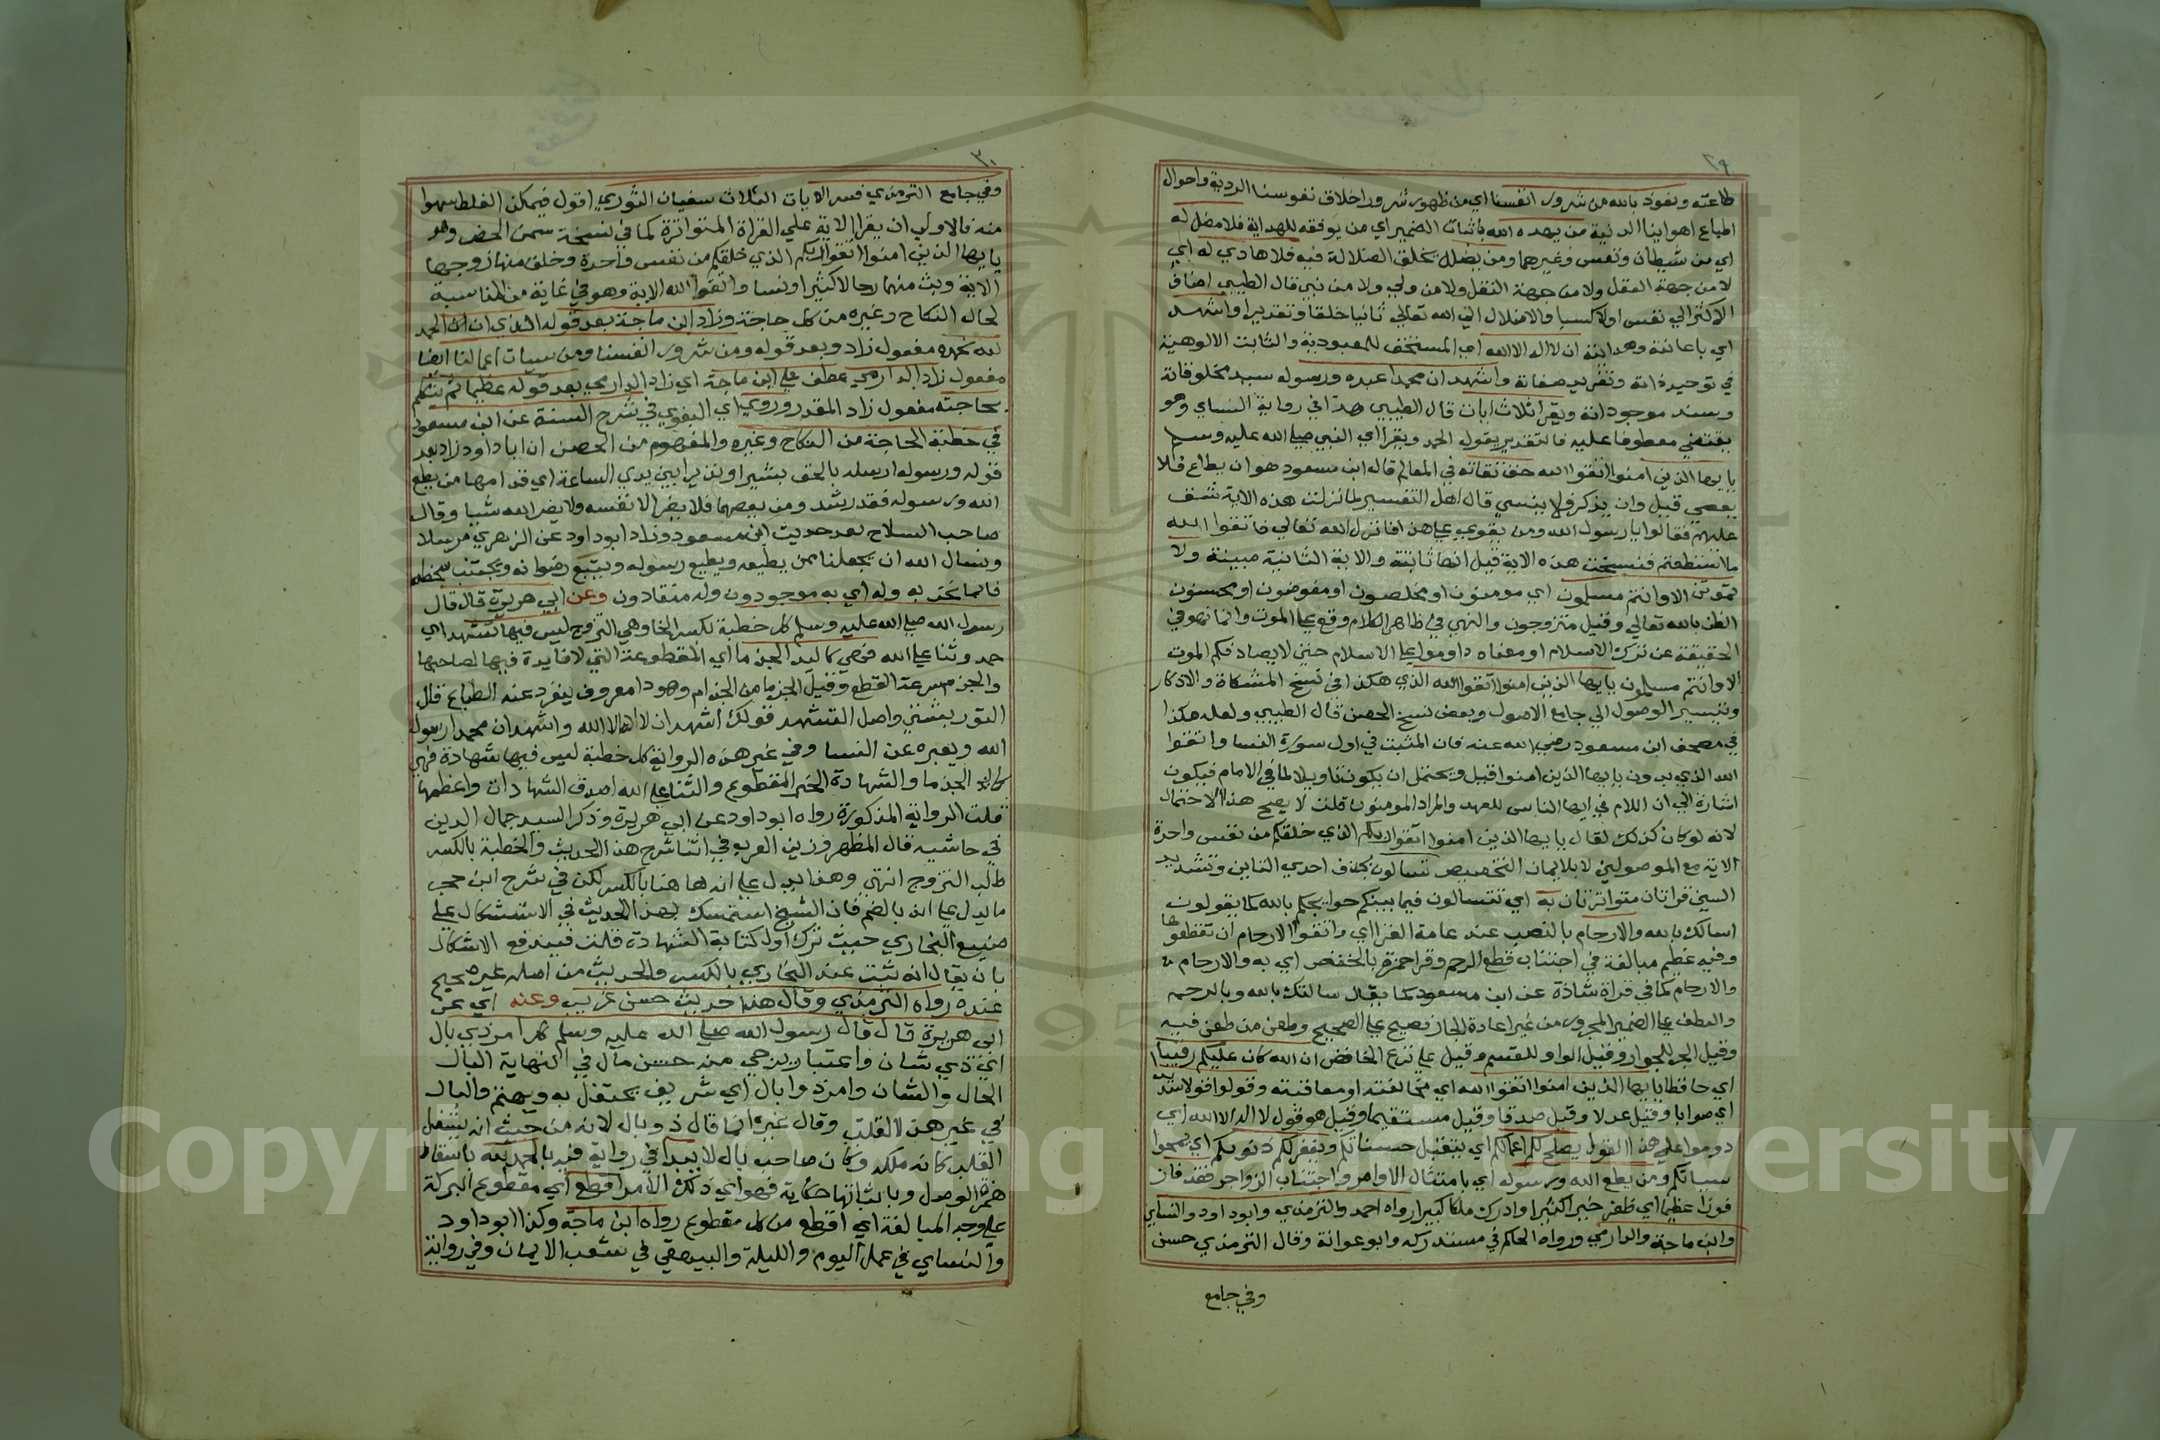 ٢٩
طاعته ونعوذ بالله من شرور انفسنا اي من ظهور شرور اخلاق نفوسنا الردية واحوال
اطباع اهواينا الدنية من يهده الله باثبات الضمير اي من يوفقه للهداية فلا مضل له
اي من شيطان ونفس وغيرهما ومن يضلل بخلق الضلالة فيه فلا هادي له اي
لا من جهة العقل ولا من جهة النقل ولا من ولي ولا من نبي قال الطيبي اضاف
الاكثر الي نفس اولا كسبا والاضلال الي الله تعالي ثانيا خلقا وتقديرا واشهد
اي باعانته وهدايته ان لا اله الا الله اي المستحق للعبودية والثابت الالوهية
في توحيد ذاته وتفريد صفاته واشهد ان محمدا عبده ورسوله سيد مخلوقاته
وسند موجوداته ويقرا ثلاث ايات قال الطيبي هذا في رواية النساي وهو
يقتضي معطوفا عليه فالتقدير يقول الحمد ويقرا اي النبي صلي الله عليه وسلم
يا يها الذين امنوا اتقوا الله حق تقاته في المعالم قال ابن مسعود هو ان يطاع فلا
يعصي قيل وان يذكر فلا ينسي قال اهل التفسير لما نزلت هذه الاية شق
عليهم فقالوا يا رسول الله ومن يقوي علي هذا فانزل الله تعالي فاتقوا الله
ما استطعتم فنسخت هذه الاية قيل انها ثابتة والاية الثانية مبينة ولا
تموتن الا وانتم مسلمون اي مومنون او مخلصون او مفوضون او محسنون
الظن بالله تعالي وقيل متزوجون والنهي في ظاهر الكلام وقع علي الموت وانما نهو في
الحقيقة عن ترك الاسلام او معناه داوموا علي الاسلام حتي لا يصادفكم الموت
الا وانتم مسلمون يا يها الذين امنوا اتقوا الله الذي هكذا في نسخ المشكاة والاذكار
وتيسير الوصول الي جامع الاصول وبعض نسخ الحصن قال الطيبي ولعله هكذا
في مصحف ابن مسعود رضي الله عنه فان المثبت في اول سورة النسا واتقوا
الله الذي بدون يا يها الذين امنوا قيل ويحتمل ان يكون تاويلا لما في الامام فيكون
اشارة الي ان اللام في ايها الناس للعهد والمراد المومنون قلت لا يصح هذا الاحتمال
لانه لو كان كذلك لقال يا يها الذين امنوا اتقوا ربكم الذي خلقكم من نفس واحدة
الاية مع الموصولين لا بلايمان التخصيص تسالون بحذف احدي التاين وتشديد
السين قراتان متواترتان به اي تتسالون فيما بينكم حوايجكم بالله كما يقولون
اسالك بالله والارحام بالنصب عند عامة القرا اي واتقوا الارحام ان تقطعوها
وفيه عظيم مبالغة في اجتناب قطع الرحم وقرا حمزة بالخفض اي به والارحام
والارحام كما في قراة شاذة عن ابن مسعود كما يقال سالتك بالله وبالرحم
والعطف علي الضمير المجرور من غير اعادة الجار فصيح علي الصحيح وطعن من طعن فيه
وقيل الجر للجوار وقيل الواو للقسم وقيل علي نزع الخافض ان الله كان عليكم رقيبا
اي حافظا يا يها الذين امنوا اتقوا الله اي مخالفته او معاقبته وقولوا قولا سديدا
اي صوابا وقيل عدلا وقيل صدقا وقيل مستقيما وقيل هو قول لا اله الا الله اي
دوموا علي هذا القول يصلح لكم اعمالكم اي يتقبل حسناتكم ويغفر لكم ذنوبكم اي يمحوا
سياتكم ومن يطع الله ورسوله اي بامتثال الاوامر واجتناب الزواجر فقد فاز
فوزا عظيما اي ظفر خيرا كثيرا وادرك ملكا كبيرا رواه احمد والترمذي وابو داود والنساي
وابن ماجة والدارمي ورواه الحاكم في مستدركه وابو عوانة وقال الترمذي حسن
وفي جامع
٣٠
وفي جامع الترمذي فسر الايات الثلاث سفيان الثوري اقول فيمكن الغلط سهوا
منه فالاولي ان يقرا الاية علي القراة المتواترة كما في نسخة سمن الحصن وهو
يا يها الذين امنوا اتقوا ربكم الذي خلقكم من نفس واحدة وخلق منها زوجها
الاية وبث منهما رجالا كثيرا ونسا واتقوا الله الاية وهو في غاية من المناسبة
لحال النكاح وغيره من كل حاجة وزاد ابن ماجة بعد قوله الذي ان الحمد
لله نحمده مفعول زاد وبعد قوله ومن شرور انفسنا ومن سيات اعمالنا ايضا
مفعول زاد الدارمي عطف علي ابن ماجة اي زاد الدارمي بعد قوله عظيما ثم يتكلم
بحاجته مفعول زاد المقدر وروي اي البغوي في شرح السنة عن ابن مسعود
في خطبة الحاجة من النكاح وغيره والمفهوم من الحصن ان ابا داود زاد بعد
قوله ورسوله ارسله بالحق بشيرا ونذيرا بين يدي الساعة اي قدامها من يطع
الله ورسوله فقد رشد ومن يعصهما فلا يضر الا نفسه ولا يضر الله شيا وقال
صاحب السلاح بعد حديث ابن مسعود وزاد ابو داود عن الزهري مرسلا
ونسال الله ان يجعلنا ممن يطيعه ويطيع رسوله ويتبع رضوانه ويجتنب سخطه
فانما نحن به وله اي به موجودون وله منقادون وعن ابي هريرة قال قال
رسول الله صلي الله عليه وسلم كل خطبة بكسر الخا وهي التزوج ليس فيها تشهد اي
حمد وثنا علي الله فهي كاليد الجذما اي المقطوعة التي لا فايدة فيها لصاحبها
والجذم سرعة القطع وقيل الجذما من الجذام وهو دا معروف ينفر عنه الطباع قال
التوربشتي واصل التشهد قولك اشهد ان لا اله الا الله واشهد ان محمدا رسول
الله ويعبر به عن الثنا وفي غير هذه الرواية كل خطبة ليس فيها شهادة فهي
كاليد الجذما والشهادة الخبر المقطوع والثنا علي الله اصدق الشهادات واعظمها
قلت الرواية المذكورة رواه ابو داود عن ابي هريرة وذكر السيد جمال الدين
في حاشيه قال المظهر وزين العرب في اثنا شرح هذا الحديث والخطبة بالكسر
طلب التزوج انتهي وهذا يدل علي انها هنا بالكسر لكن في شرح ابن حجر
ما يدل علي انه بالضم فان الشيخ استمسك بهذا الحديث في الاستشكال علي
صنيع البخاري حيث ترك اول كتابه الشهادة قلت فيندفع الاشكال
بان يقال انه ثبت عند البخاري بالكسر والحديث من اصله غير صحيح
عنده رواه الترمذي وقال هذا حديث حسن غريب وعنه اي عن
ابي هريرة قال قال رسول الله صلي الله عليه وسلم كل امر ذي بال
اي ذي شان واعتبار يرجي منه حسن مال في النهاية البال
الحال والشان وامر ذوا بال اي شريف يحتفل به ويهتم والبال
في غير هذا القلب وقال غيره انما قال ذو بال لانه من حيث انه يشغل
القلب كانه ملكه وكان صاحب بال لا يبدا في رواية فيه بالحمد لله باسقاط
همزة الوصل وباثباتها حكاية فهو اي ذلك الامر اقطع اي مقطوع البركة
علي وجه المبالغة اي اقطع من كل مقطوع رواه ابن ماجة وكذا ابو داود
والنساي في عمل اليوم والليلة والبيهقي في شعب الايمان وفي رواية